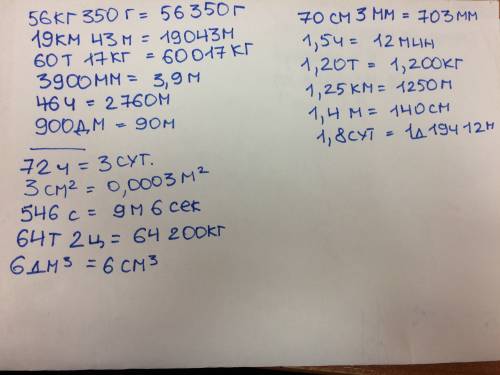 56кг 350г = 56 350г
19км 43м = 19043м
60т 17кг = 60017кг
3900мм = 3,9м
46ч = 2760м
900дм = 90м
72ч = 3 сут.
3 см² = 0,0003 м²
546 с = 9м 6 сек
64т 2ц = 64 200кг
6 дм³ = 6 см³
70 см 3 мм = 703 мм
1,5ч = 12 мин
1,20т = 1,200кг
1,25 км = 1250м
1,4 м = 140см
1,8 сут = 1д 19ч 12м